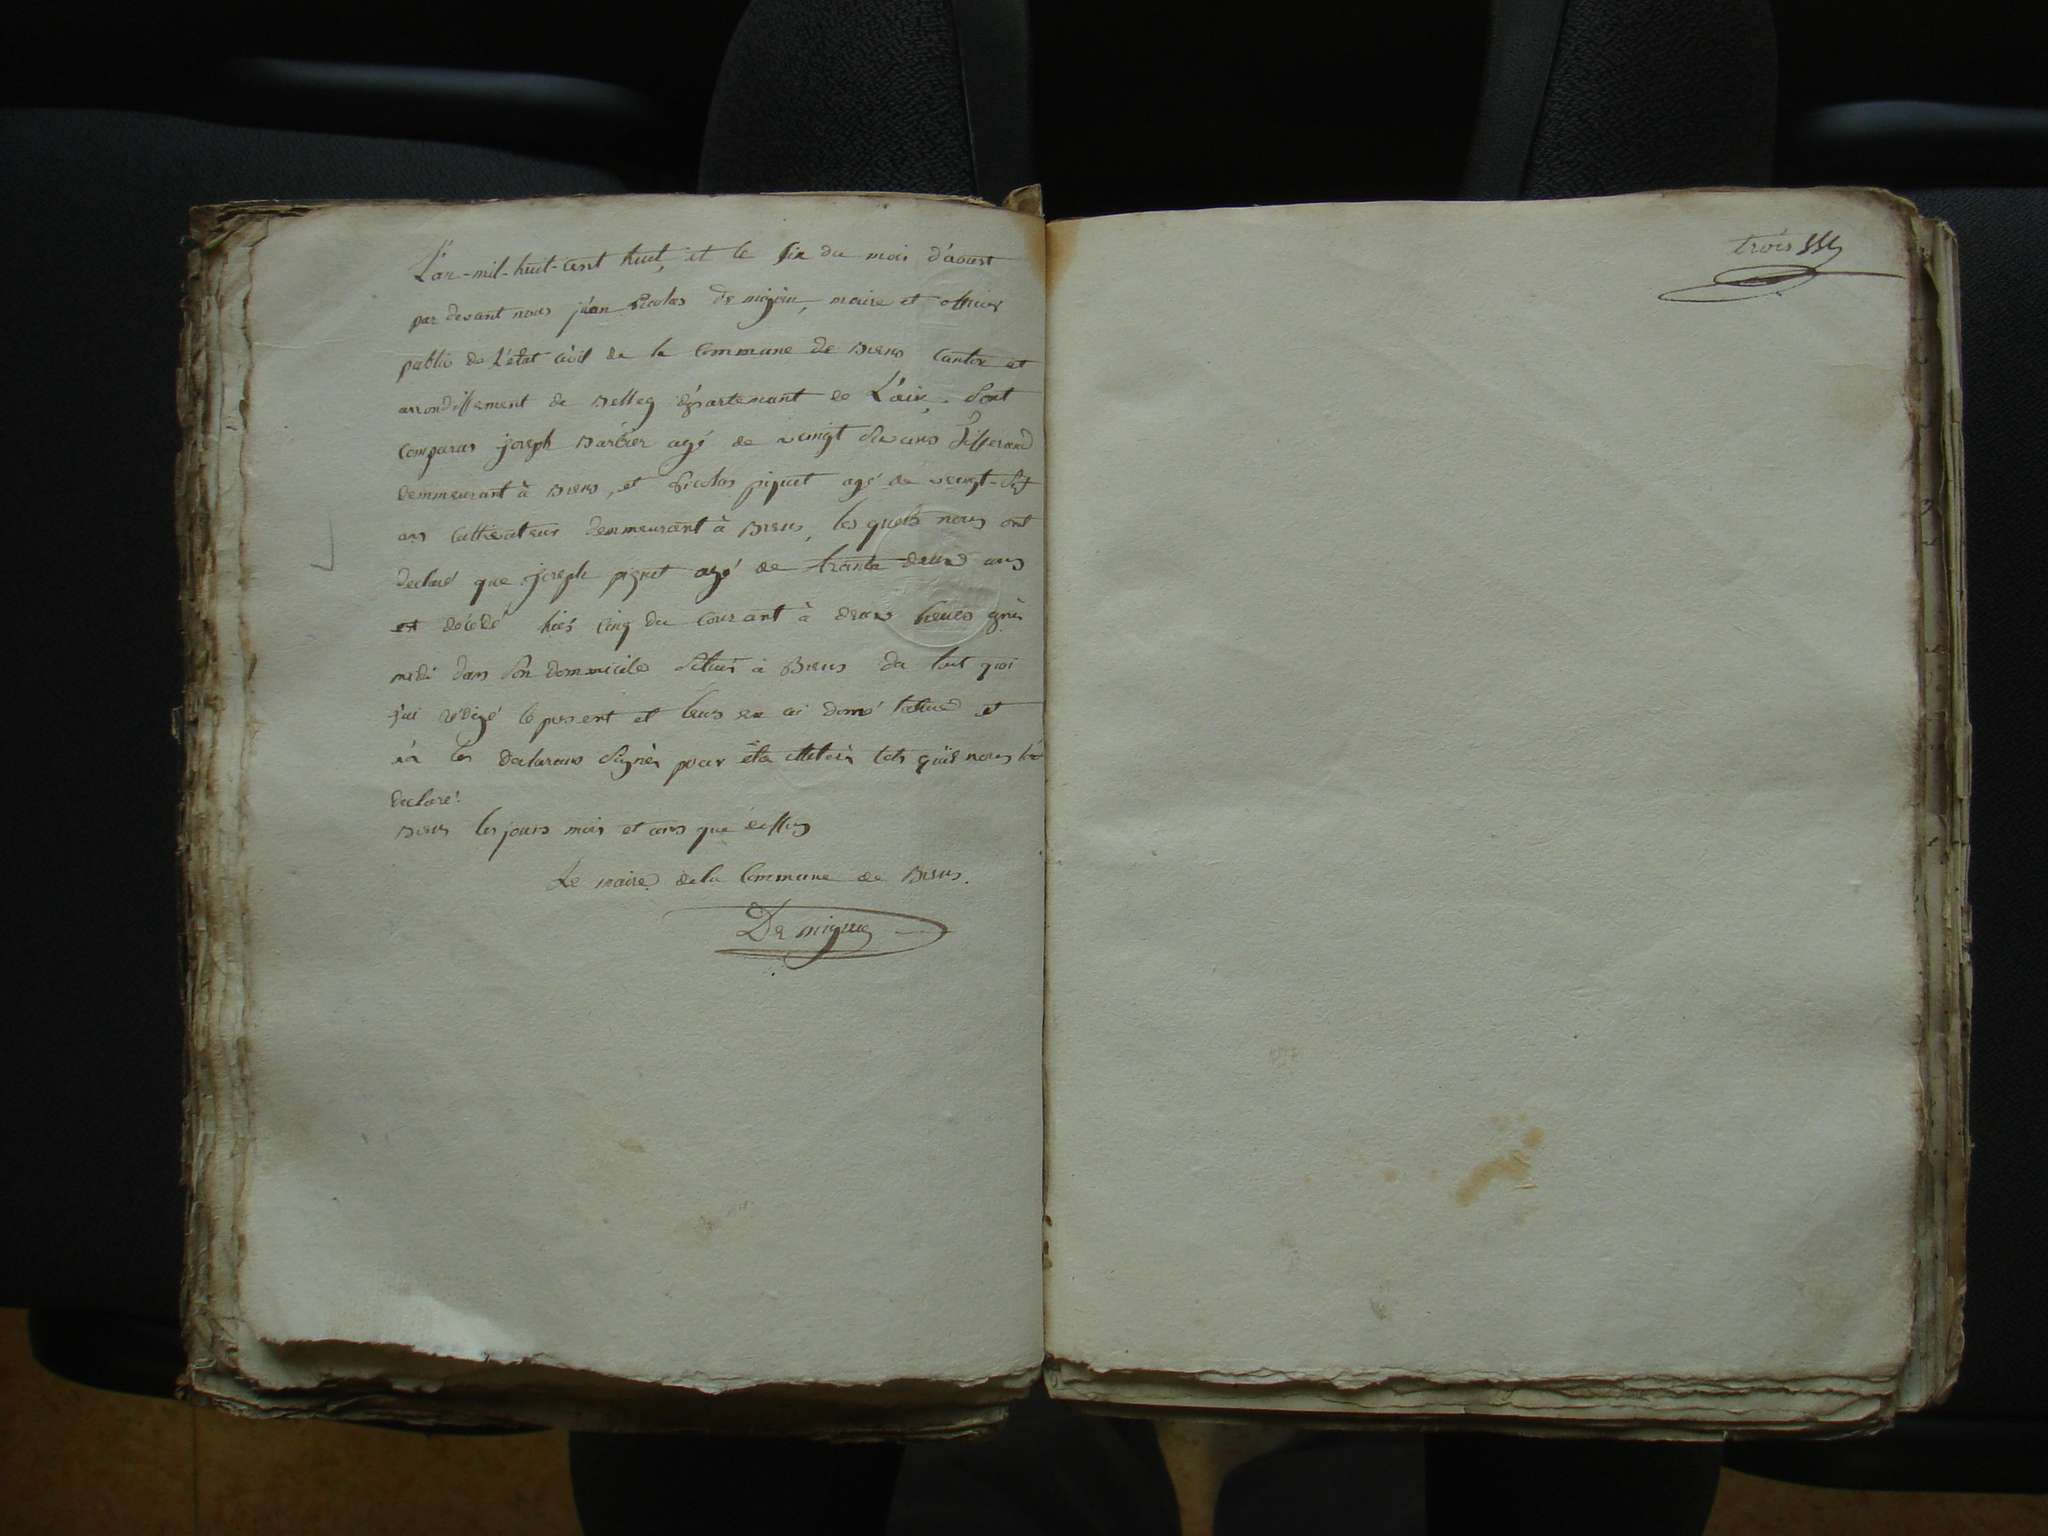 L'an-mil-huit-cent huit, et le six du mois d'aoust
par devant nous jean nicolas de migieu, maire et officier
public de L'état civil de la Commune de Brens Canton et
arrondissement de Belley département de L'ain, Sont
Comparus joseph Barbier agé de vingt six ans Tisserand
demmeurant à Brens, et nicolas piquet agé de vingt-
ans Cultivateur demmeurant à Brens, les quels nous ont
declaré que joseph piquet agé de trante deux ans
est décédé hier cinq du courant à deux heures après
midi dans Son dommicile Situé à Brens de tout quoi
j'ai rédigé le present et leurs en ai donné lecture et
les declarans Signer pour nous
declaré
Brens les jours mois et ans que dessus
Le maire de la Commune de Brens.
De migieu
trois